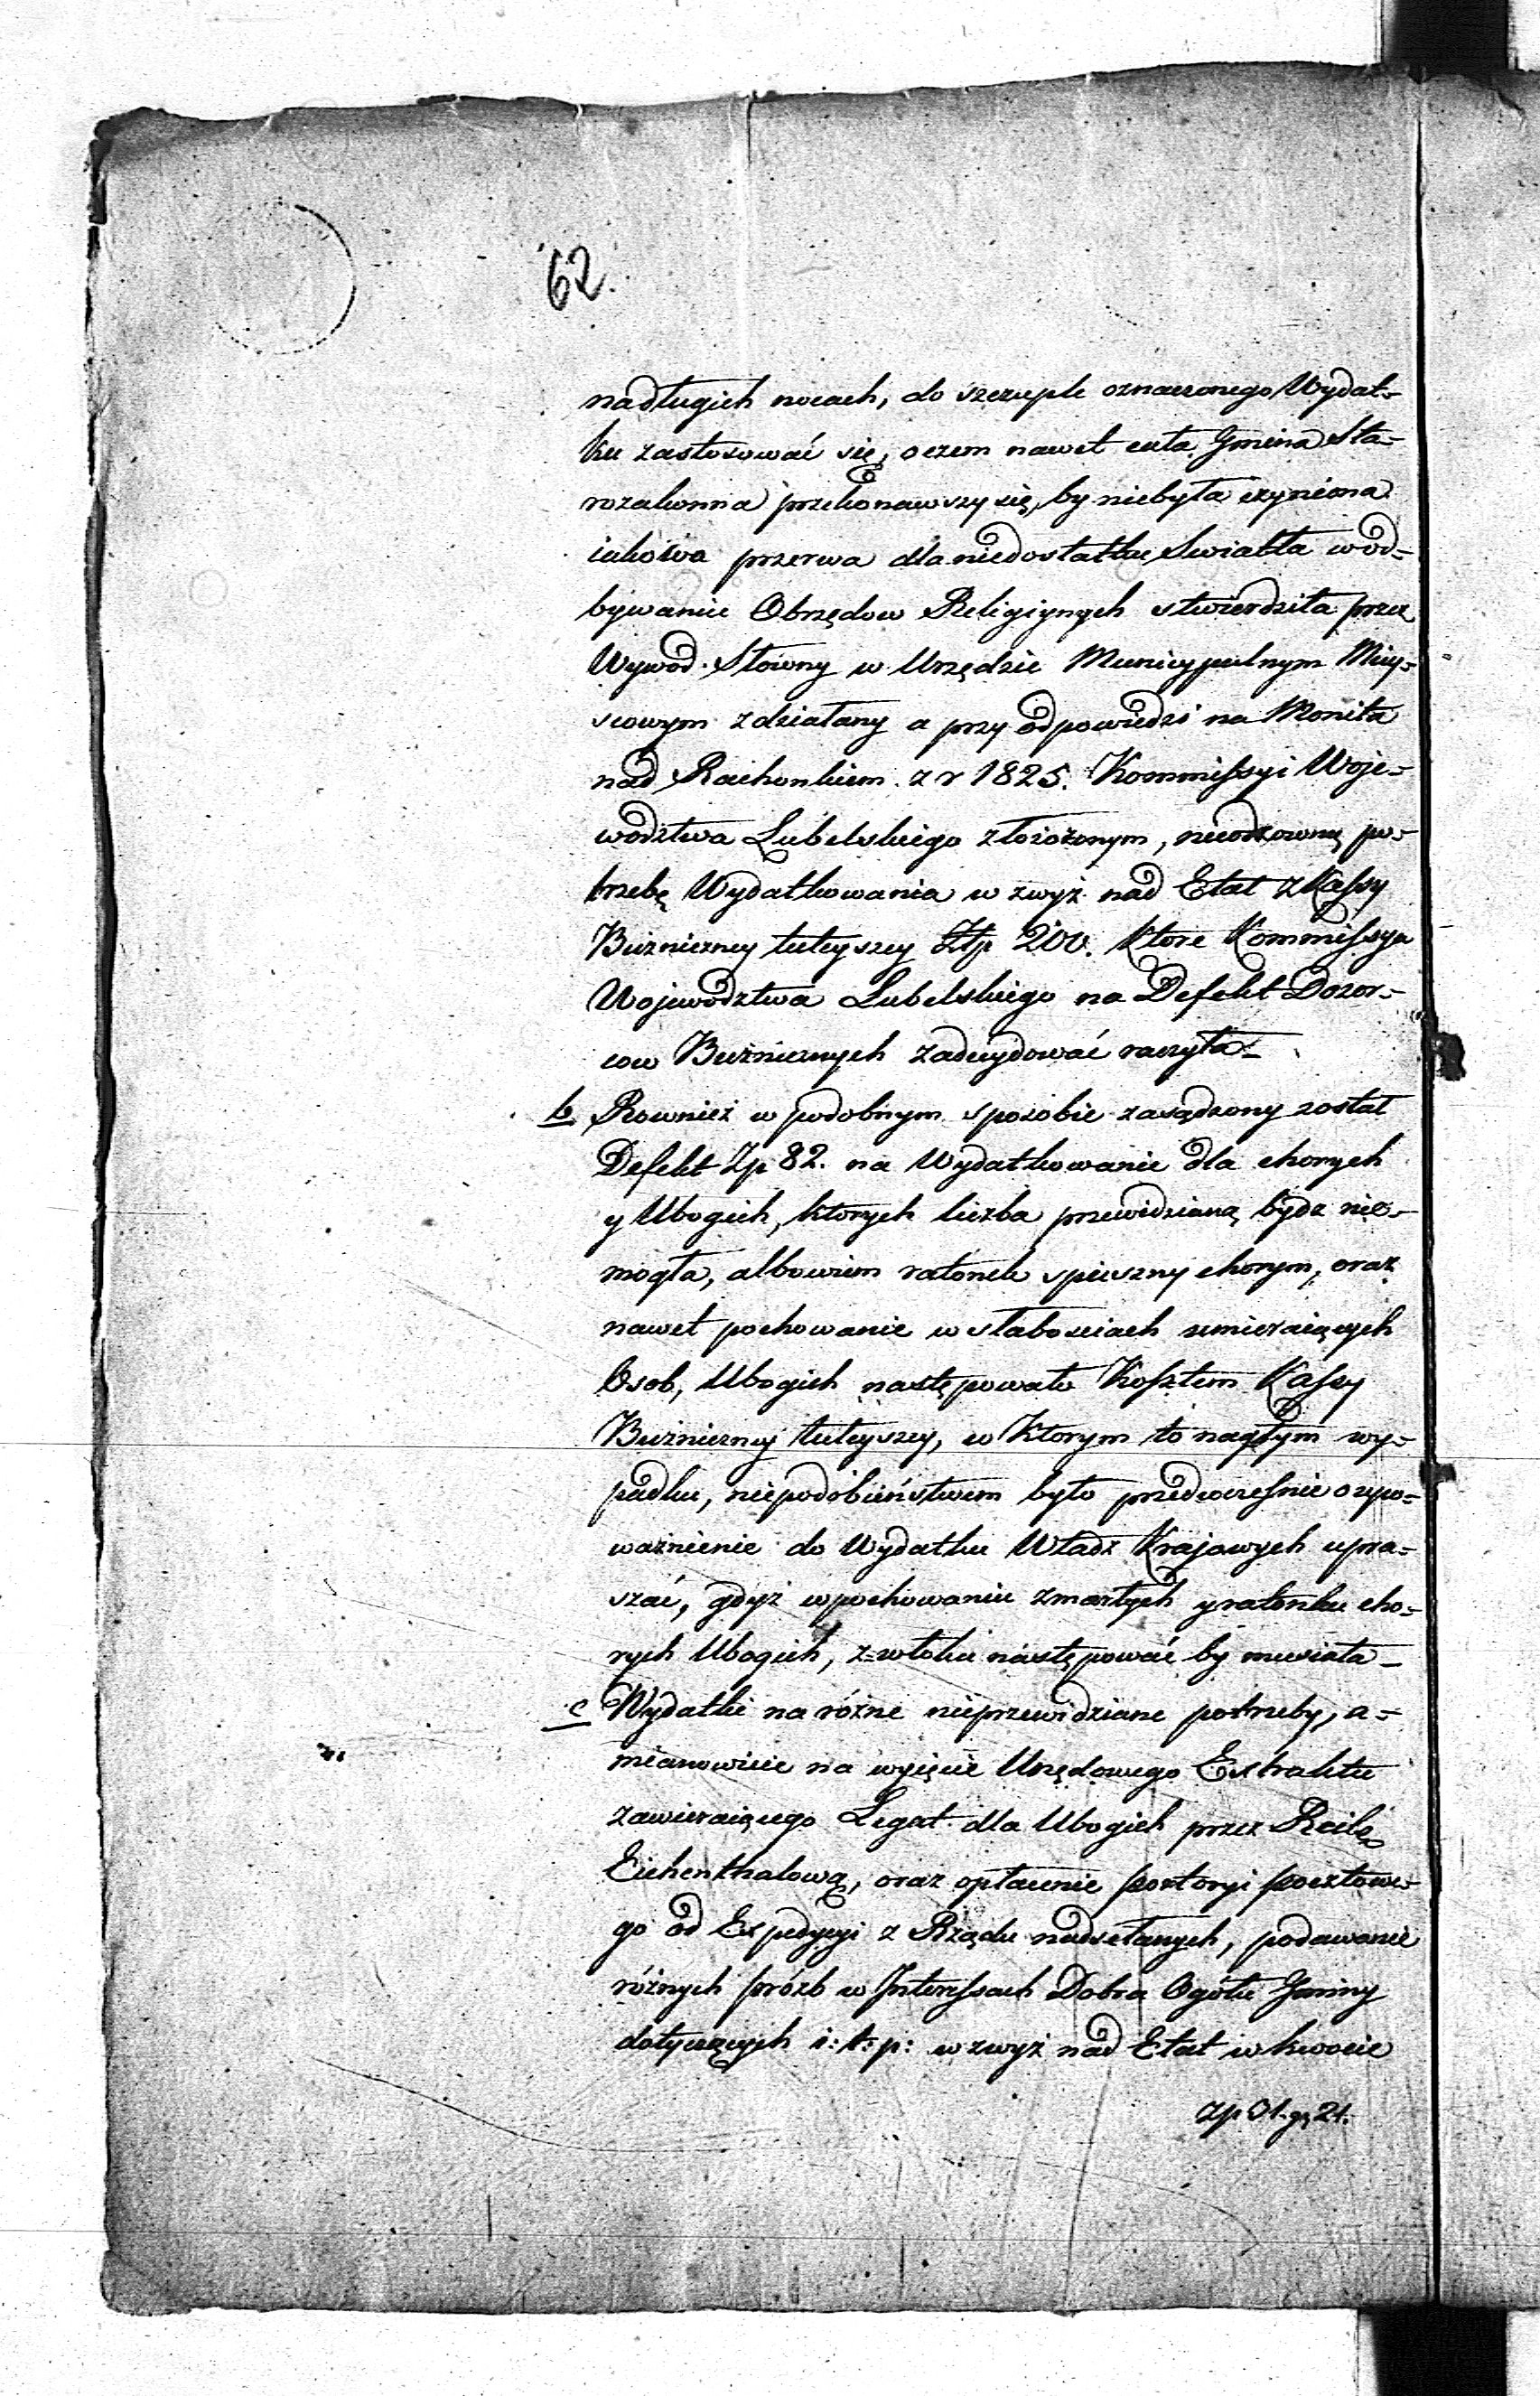 62.
nadługich nocach, do szczuple oznaczonego Wydat=
ku zastosować się, oczem nawet cała Gmina Sta=
rozakonna przekonawszy się, by niebyła czyniona
iakowa przerwa dla niedostatku Swiatła wod=
bywaniu Obrzędow Religiynych stwierdziła przez
Wywod Słowny w Urzędzie Municypalnym Miey=
scowym zdziałany a przy odpowiedzi na Monita
nad Rachunkiem z r 1825. Kommissyi Woje=
wodztwa Lubelskiego złożonym, nieodzowną po=
trzebę Wydatkowania w zwyż nad Etat z Kassy
Bużniczney tuteyszey Złp 200. Ktore Kommissya
Wojewodztwa Lubelskiego na Defekt Dozor=
cow Bużnicznych zadecydować raczyła _
b Rownież w podobnym sposobie zasądzony został
Defekt Zp 82. na Wydatkowanie dla chorych
y Ubogich, ktorych liczba przewidzianą bydz nie=
mogła, albowiem ratunek spieszny chorym, oraz
nawet pochowanie w słabosciach umieraiących
Osob, Ubogich następowało Kosztem Kassy
Bużniczney tuteyszey, w Ktorym to nagłym wy=
padku, niepodobieństwem było przedwczesnie oupo=
ważnienie do Wydatku Władz Krajowych upra=
szać, gdyż wpochowaniu zmarłych y ratunku cho=
rych Ubogich, z=włoka następować by musiała _
c Wydatki na różne nieprzewidziane potrzeby, a=
mianowicie na wyięcie Urzędowego Extraktu
zawieraiącego Legat dla Ubogich przez Railę
Eichenthalową, oraz opłacenie portoryi pocztowe=
go od Expedycyi z Rządu nadsełanych, podawanie
różnych próżb w Interessach Dobra Ogółu Gminy
dotyczących i: t: p: w zwyż nad Etat w kwocie
zp 31. gr 21.